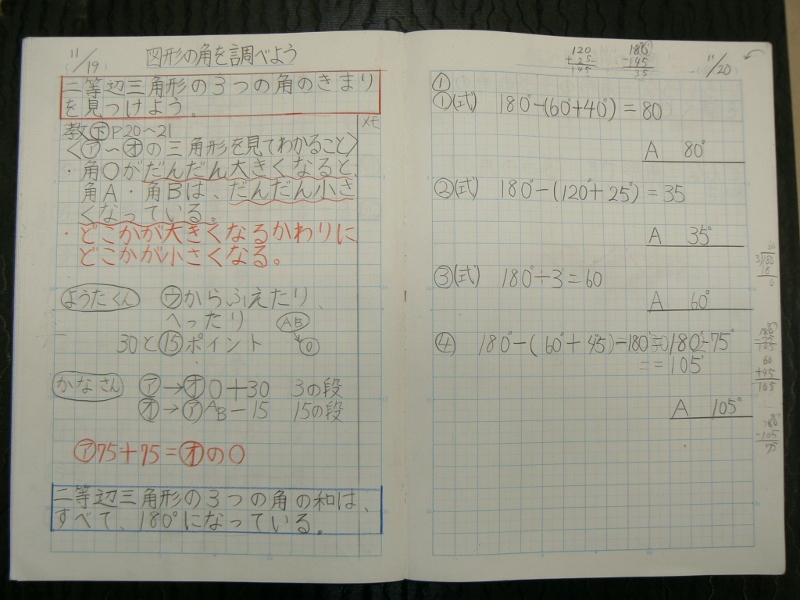 11/19
図形の角を調べよう
二等辺三角形の3つの角のきまり
を見つけよう。
教下P.20〜21
メモ
〈ア〜オの三角形を見てわかること〉
・角○がだんだん大きくなると、
角A・角Bは、だんだん小さ
くなっている。
・どこかが大きくなるかわりに
どこかが小さくなる。
ようたくん ウからふえたり、
へったり AB
30と15ポイント ○
かなさん ア→オ○+30 3の段
オ→ア AB-15 15の段
ア75+75=オの○
二等辺三角形の3つの角の和は、
すべて、180°になっている。
120
+25
145
180
-145
35
11/20
①
①(式) 180°-(60°+40°)=80
A 80°
②(式) 180°-(120°+25°)=35
A 35°
③(式) 180°÷3=60
A 60°
④ 180°-(60°+45)
180°-75°
=105°
A 105°
60
3)180
18
0
60
+45
105
180
-105
75